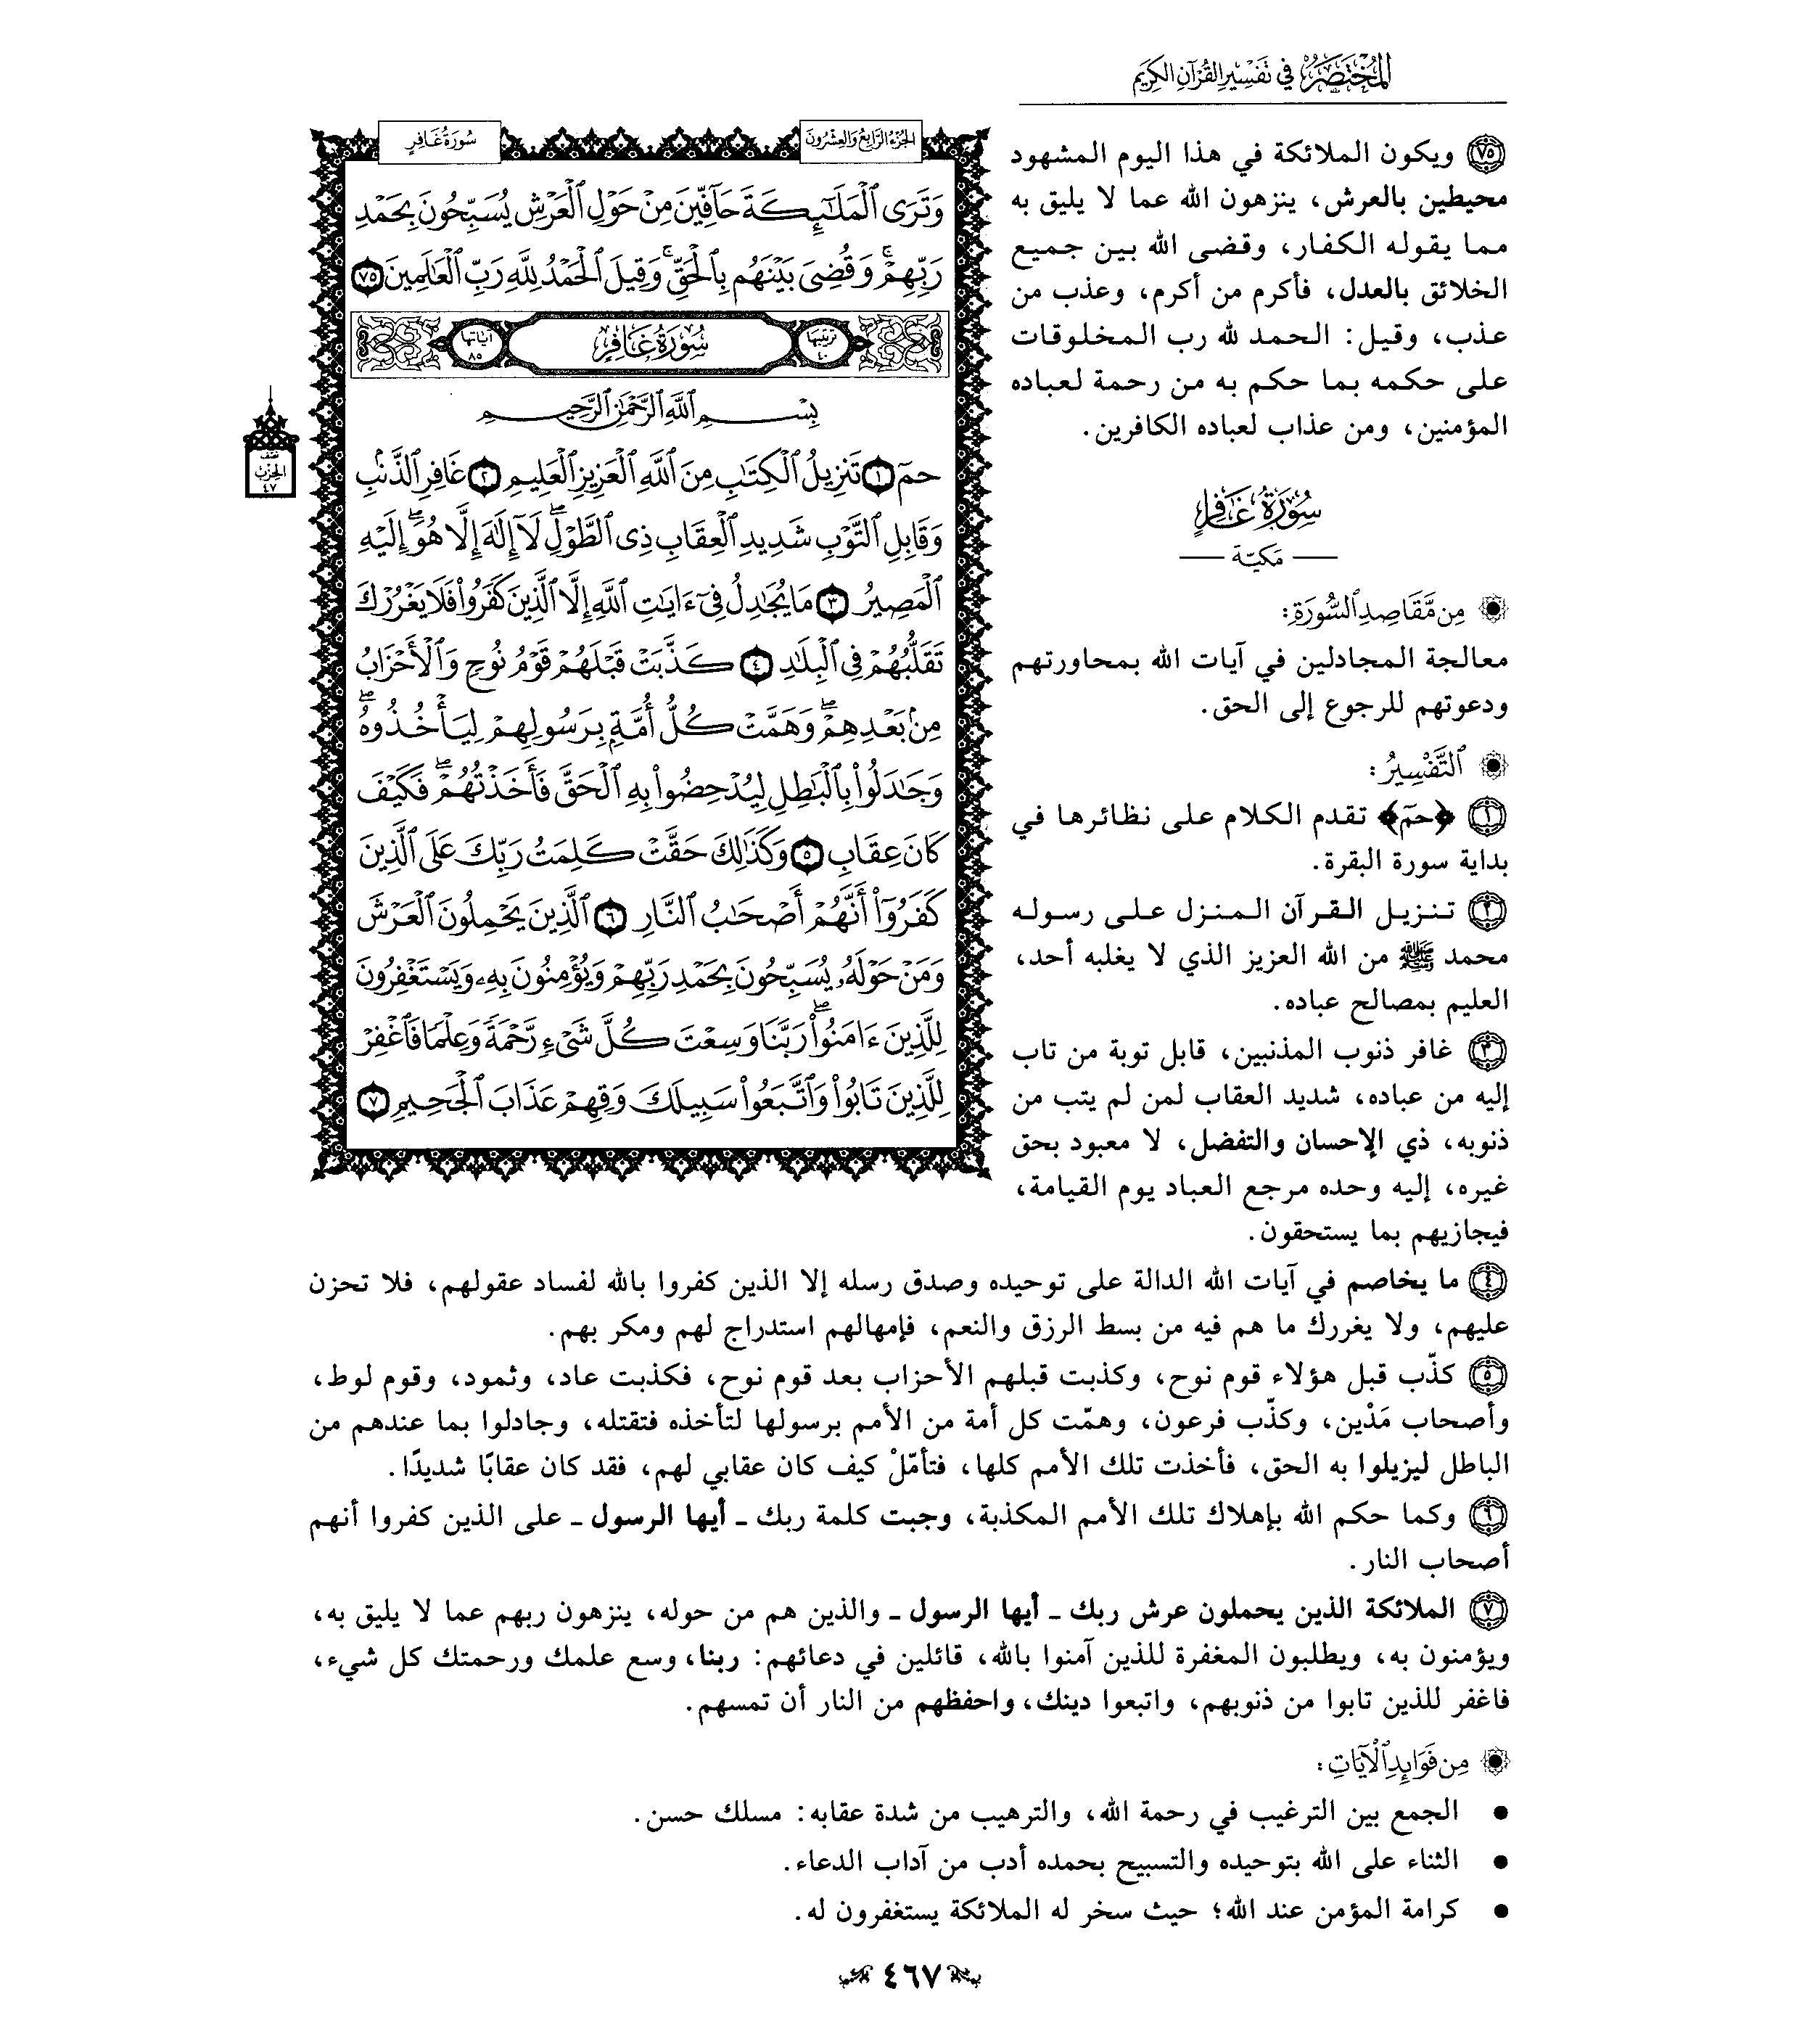 المختصر في تفسير القرآن الكريم
الجزء الرابع والعشرون
سورة غافر
وَتَرَى ٱلْمَلَٰٓئِكَةَ حَآفِّينَ مِنْ حَوْلِ ٱلْعَرْشِ يُسَبِّحُونَ بِحَمْدِ
رَبِّهِمْۚ وَقُضِىَ بَيْنَهُم بِٱلْحَقِّۚ وَقِيلَ ٱلْحَمْدُ لِلَّهِ رَبِّ ٱلْعَٰلَمِينَ ٧٥
ترتيبها ٤٠ سُورَةُ غَافِرٍ آياتها ٨٥
بِسْمِ ٱللَّهِ ٱلرَّحْمَٰنِ ٱلرَّحِيمِ
حمٓ ١ تَنزِيلُ ٱلْكِتَٰبِ مِنَ ٱللَّهِ ٱلْعَزِيزِ ٱلْعَلِيمِ ٢ غَافِرِ ٱلذَّنۢبِ
وَقَابِلِ ٱلتَّوْبِ شَدِيدِ ٱلْعِقَابِ ذِى ٱلطَّوْلِۖ لَآ إِلَٰهَ إِلَّا هُوَۖ إِلَيْهِ
ٱلْمَصِيرُ ٣ مَا يُجَٰدِلُ فِىٓ ءَايَٰتِ ٱللَّهِ إِلَّا ٱلَّذِينَ كَفَرُوا۟ فَلَا يَغْرُرْكَ
تَقَلُّبُهُمْ فِى ٱلْبِلَٰدِ ٤ كَذَّبَتْ قَبْلَهُمْ قَوْمُ نُوحٍ وَٱلْأَحْزَابُ
مِنۢ بَعْدِهِمْۖ وَهَمَّتْ كُلُّ أُمَّةٍۭ بِرَسُولِهِمْ لِيَأْخُذُوهُۖ
وَجَٰدَلُوا۟ بِٱلْبَٰطِلِ لِيُدْحِضُوا۟ بِهِ ٱلْحَقَّ فَأَخَذْتُهُمْۖ فَكَيْفَ
كَانَ عِقَابِ ٥ وَكَذَٰلِكَ حَقَّتْ كَلِمَتُ رَبِّكَ عَلَى ٱلَّذِينَ
كَفَرُوٓا۟ أَنَّهُمْ أَصْحَٰبُ ٱلنَّارِ ٦ ٱلَّذِينَ يَحْمِلُونَ ٱلْعَرْشَ
وَمَنْ حَوْلَهُۥ يُسَبِّحُونَ بِحَمْدِ رَبِّهِمْ وَيُؤْمِنُونَ بِهِۦ وَيَسْتَغْفِرُونَ
لِلَّذِينَ ءَامَنُوا۟ۖ رَبَّنَا وَسِعْتَ كُلَّ شَىْءٍ رَّحْمَةً وَعِلْمًا فَٱغْفِرْ
لِلَّذِينَ تَابُوا۟ وَٱتَّبَعُوا۟ سَبِيلَكَ وَقِهِمْ عَذَابَ ٱلْجَحِيمِ ٧
نصف
الحزب
٤٧
٧٥ ويكون الملائكة في هذا اليوم المشهود
محيطين بالعرش، ينزهون الله عما لا يليق به
مما يقوله الكفار، وقضى الله بين جميع
الخلائق بالعدل، فأكرم من أكرم، وعذب من
عذب، وقيل: الحمد لله رب المخلوقات
على حكمه بما حكم به من رحمة لعباده
المؤمنين، ومن عذاب لعباده الكافرين.
سُورَةُ غَافِرٍ
مكيّة
مِن مَّقَاصِدِ ٱلسُّورَةِ:
معالجة المجادلين في آيات الله بمحاورتهم
ودعوتهم للرجوع إلى الحق.
ٱلتَّفْسِيرُ:
١ ﴿حمٓ﴾ تقدم الكلام على نظائرها في
بداية سورة البقرة.
٢ تنزيل القرآن المنزل على رسوله
محمد ﷺ من الله العزيز الذي لا يغلبه أحد،
العليم بمصالح عباده.
٣ غافر ذنوب المذنبين، قابل توبة من تاب
إليه من عباده، شديد العقاب لمن لم يتب من
ذنوبه، ذي الإحسان والتفضل، لا معبود بحق
غيره، إليه وحده مرجع العباد يوم القيامة،
فيجازيهم بما يستحقون.
٤ ما يخاصم في آيات الله الدالة على توحيده وصدق رسله إلا الذين كفروا بالله لفساد عقولهم، فلا تحزن
عليهم، ولا يغررك ما هم فيه من بسط الرزق والنعم، فإمهالهم استدراج لهم ومكر بهم.
٥ كذّب قبل هؤلاء قوم نوح، وكذبت قبلهم الأحزاب بعد قوم نوح، فكذبت عاد، وثمود، وقوم لوط،
وأصحاب مَدْين، وكذّب فرعون، وهمّت كل أمة من الأمم برسولها لتأخذه فتقتله، وجادلوا بما عندهم من
الباطل ليزيلوا به الحق، فأخذت تلك الأمم كلها، فتأمّلْ كيف كان عقابي لهم، فقد كان عقابًا شديدًا.
٦ وكما حكم الله بإهلاك تلك الأمم المكذبة، وجبت كلمة ربك ـ أيها الرسول ـ على الذين كفروا أنهم
أصحاب النار.
٧ الملائكة الذين يحملون عرش ربك ـ أيها الرسول ـ والذين هم من حوله، ينزهون ربهم عما لا يليق به،
ويؤمنون به، ويطلبون المغفرة للذين آمنوا بالله، قائلين في دعائهم: ربنا، وسع علمك ورحمتك كل شيء،
فاغفر للذين تابوا من ذنوبهم، واتبعوا دينك، واحفظهم من النار أن تمسهم.
مِن فَوَائِدِ ٱلْآيَاتِ:
• الجمع بين الترغيب في رحمة الله، والترهيب من شدة عقابه: مسلك حسن.
• الثناء على الله بتوحيده والتسبيح بحمده أدب من آداب الدعاء.
• كرامة المؤمن عند الله؛ حيث سخر له الملائكة يستغفرون له.
٤٦٧